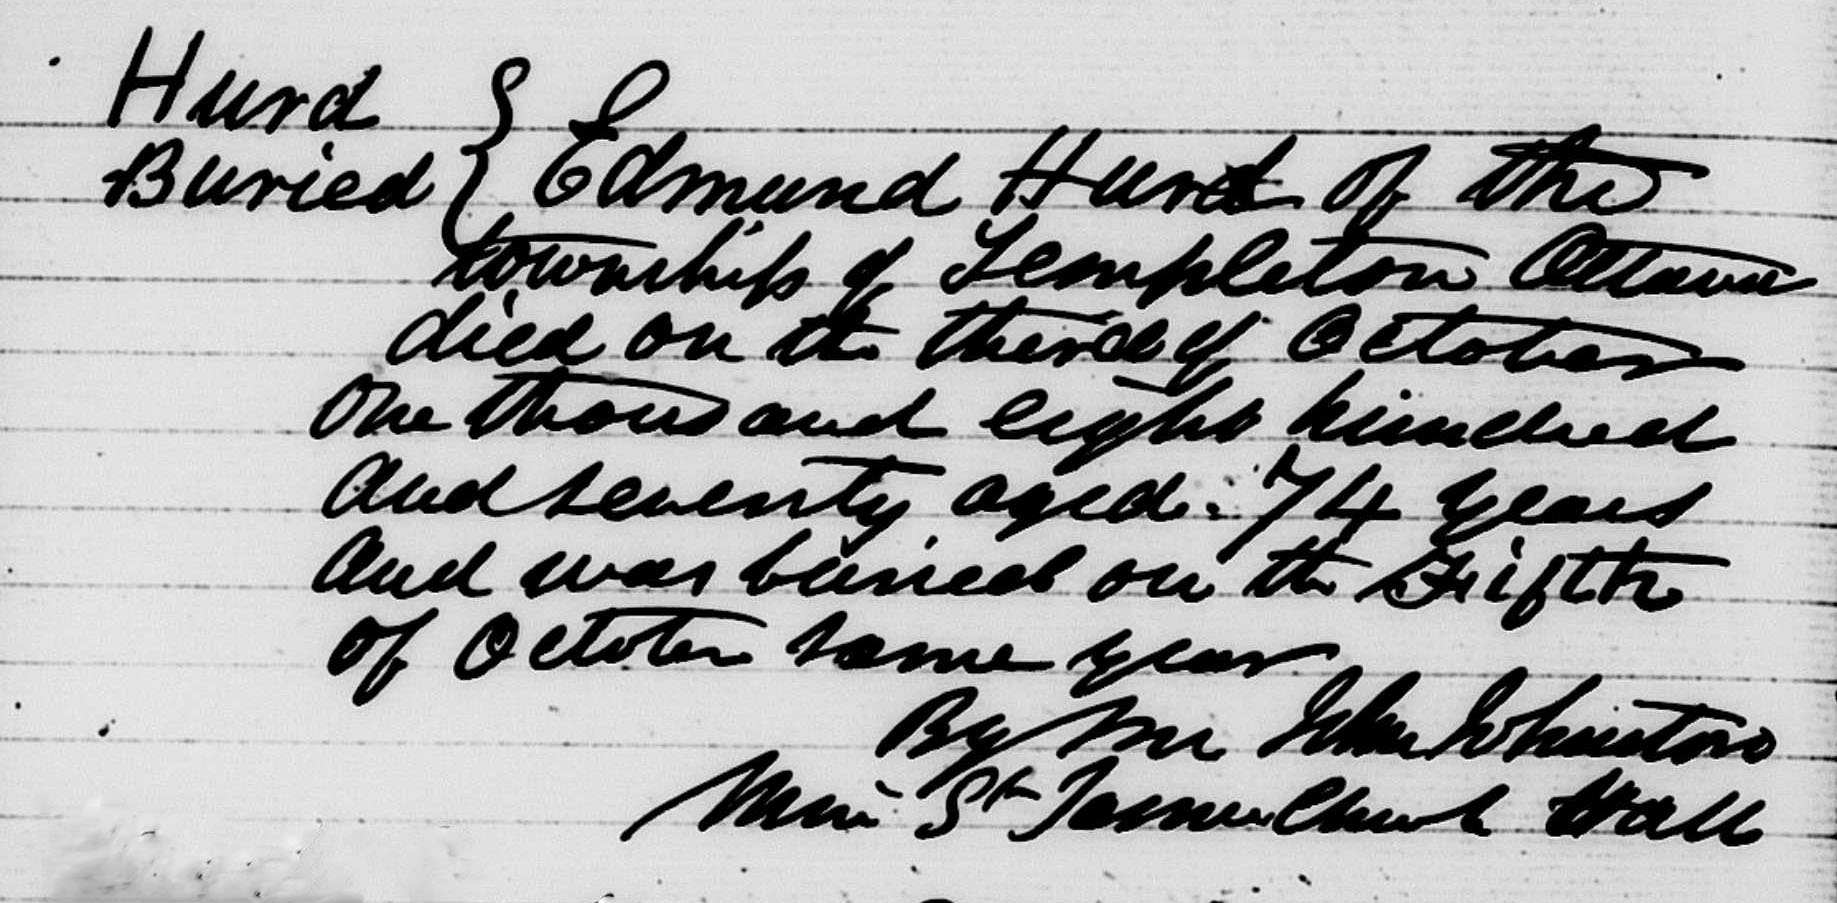 Hurd
Buried } Edmund Hurd of the
township of Templeton Ottawa
died on the third of October
One thousand eight hundred
and seventy aged : 74 years
And was buried on the Fifth
of October same year
By me John Johnston
Min. St James Church Hull